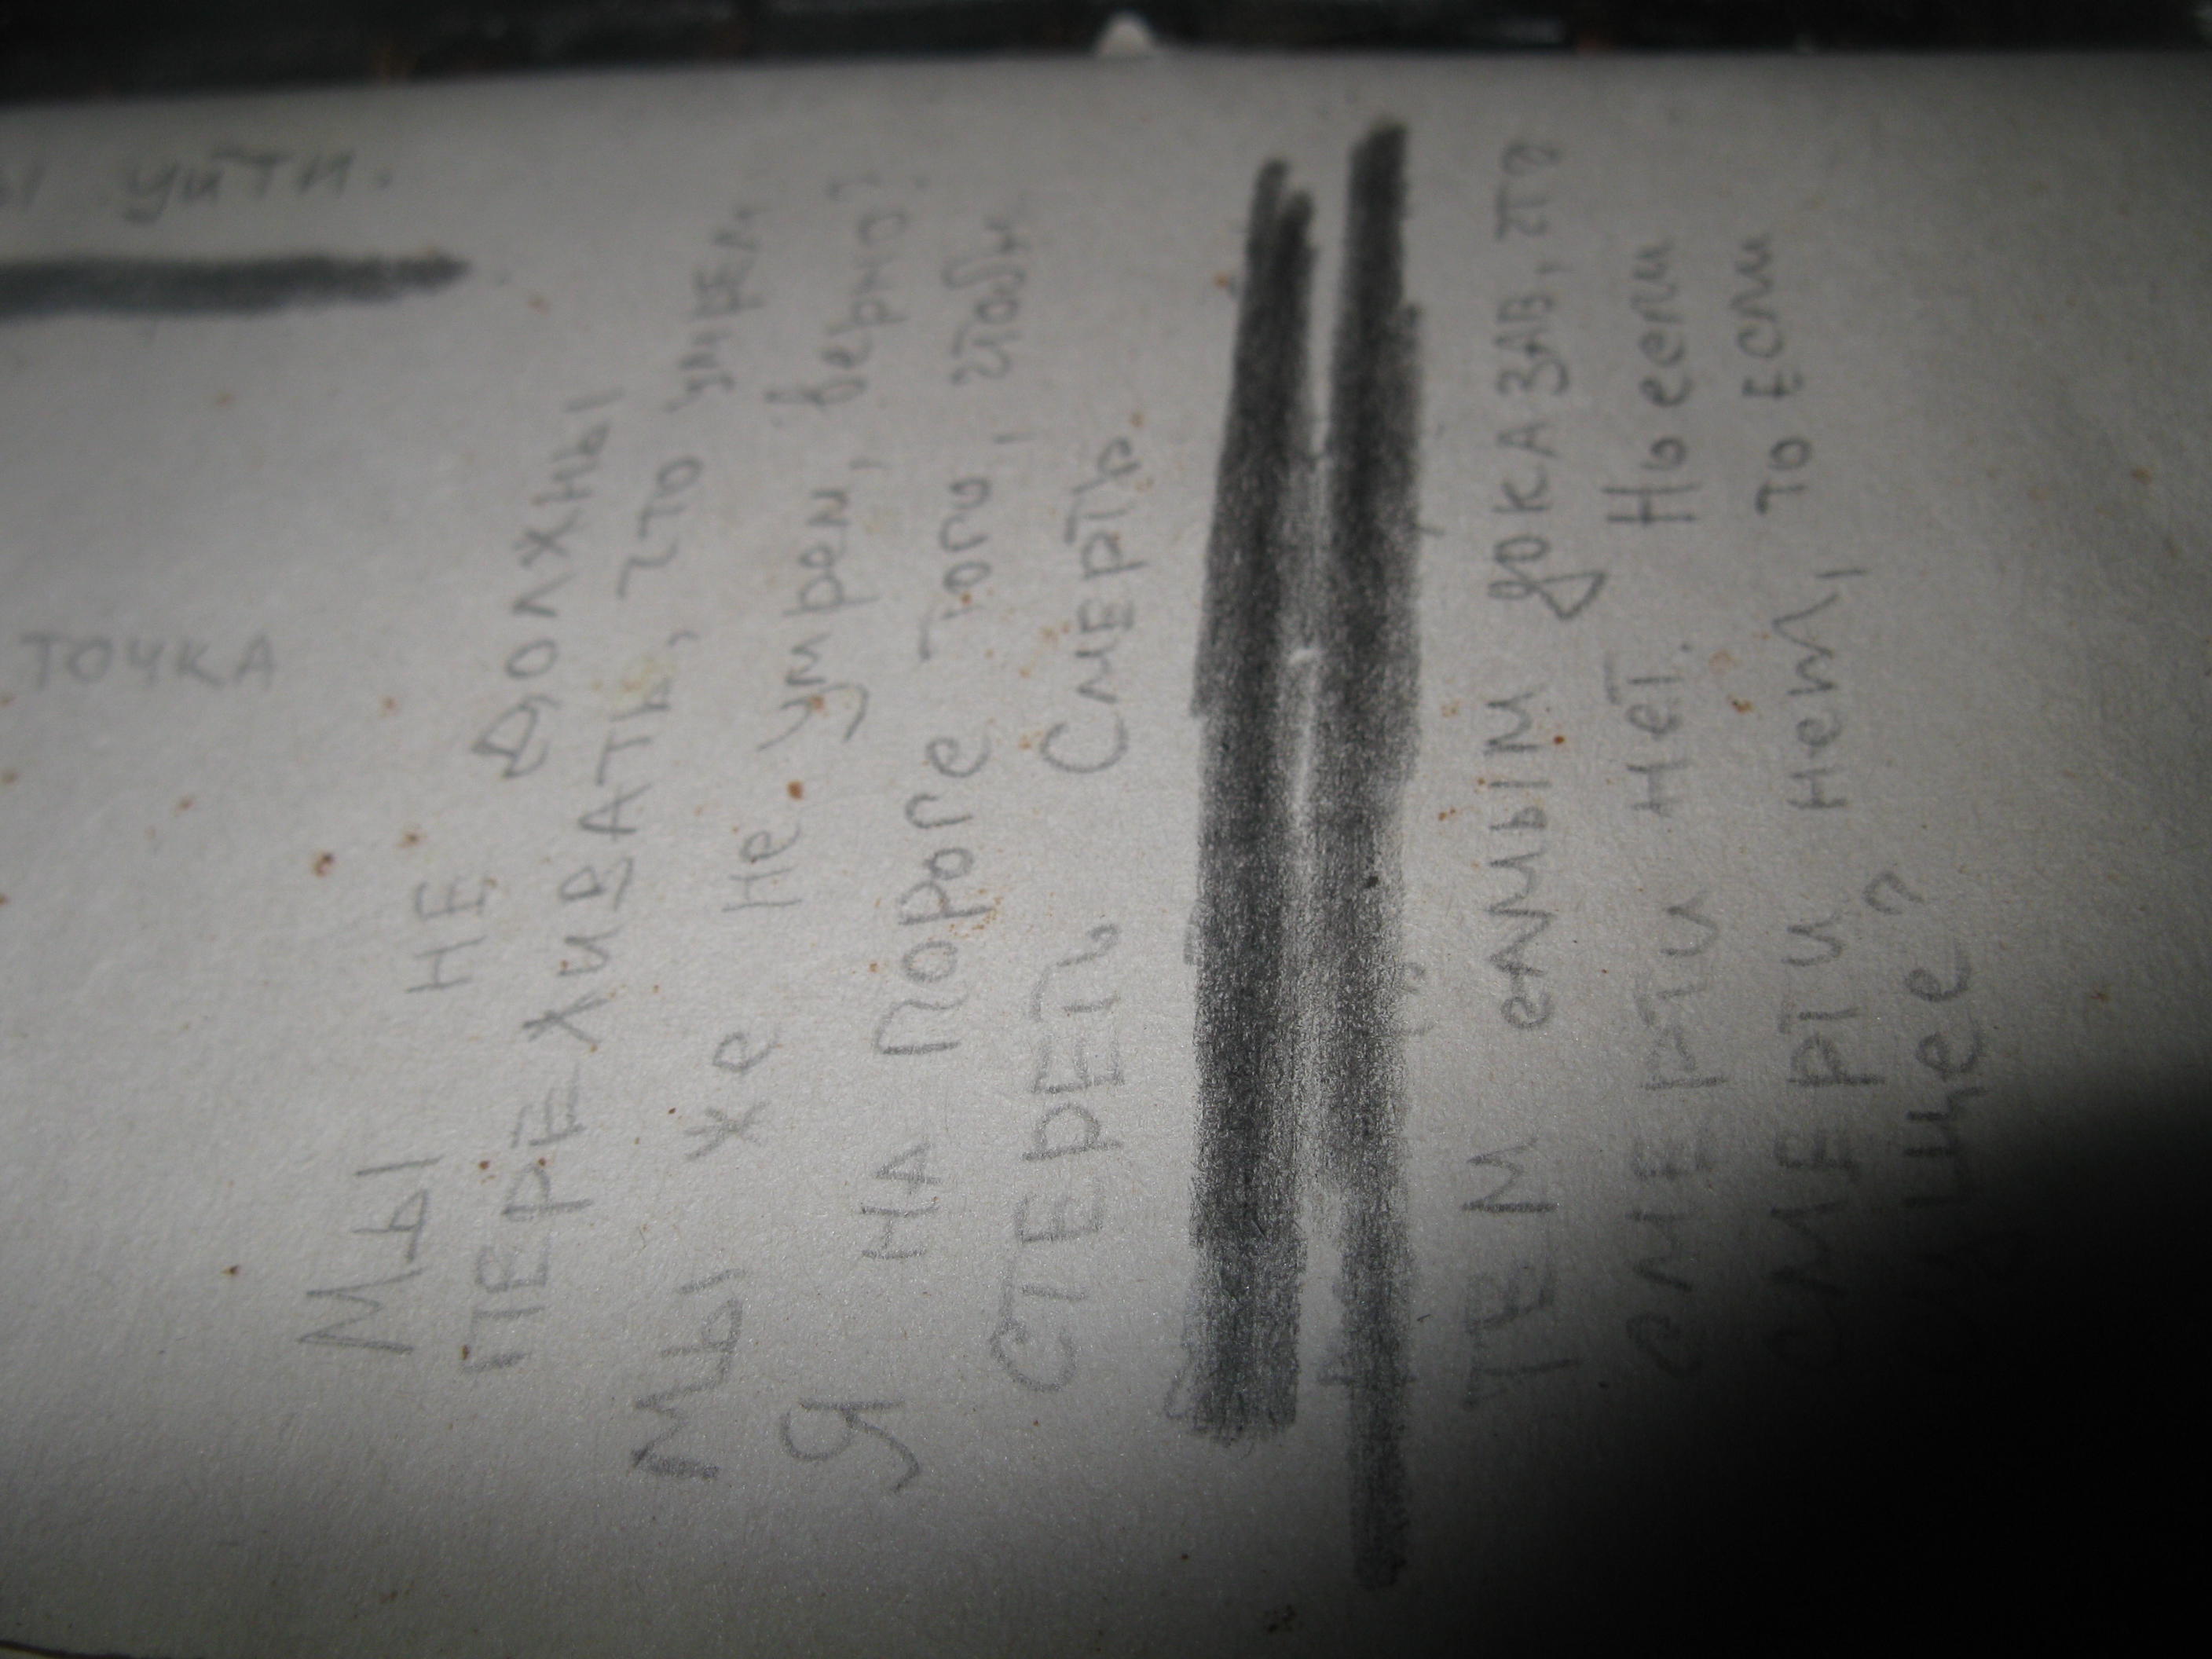 уйти.
ТОЧКА
МЫ НЕ ДОЛЖНЫ
ПЕРЕЖИВАТЬ, что умрем
МЫ же не умрем, верно?
Я НА ПОРОГЕ того, чтобы
СТЕРЕТЬ СМЕРТЬ
ТЕМ САМЫМ ДОКАЗАВ, что
СМЕРТИ нет. Но если
СМЕРТИ нет, то ЕСЛИ